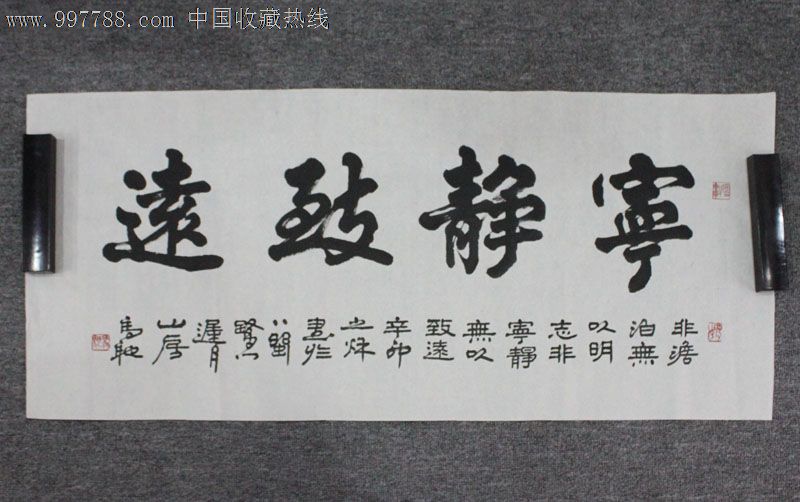 www.997788.com 中国收藏热线
寧靜致遠
非澹
泊無
以明
志非
寧靜
無以
致遠
辛卯
之秌
書於
遲月
山房
馬馳